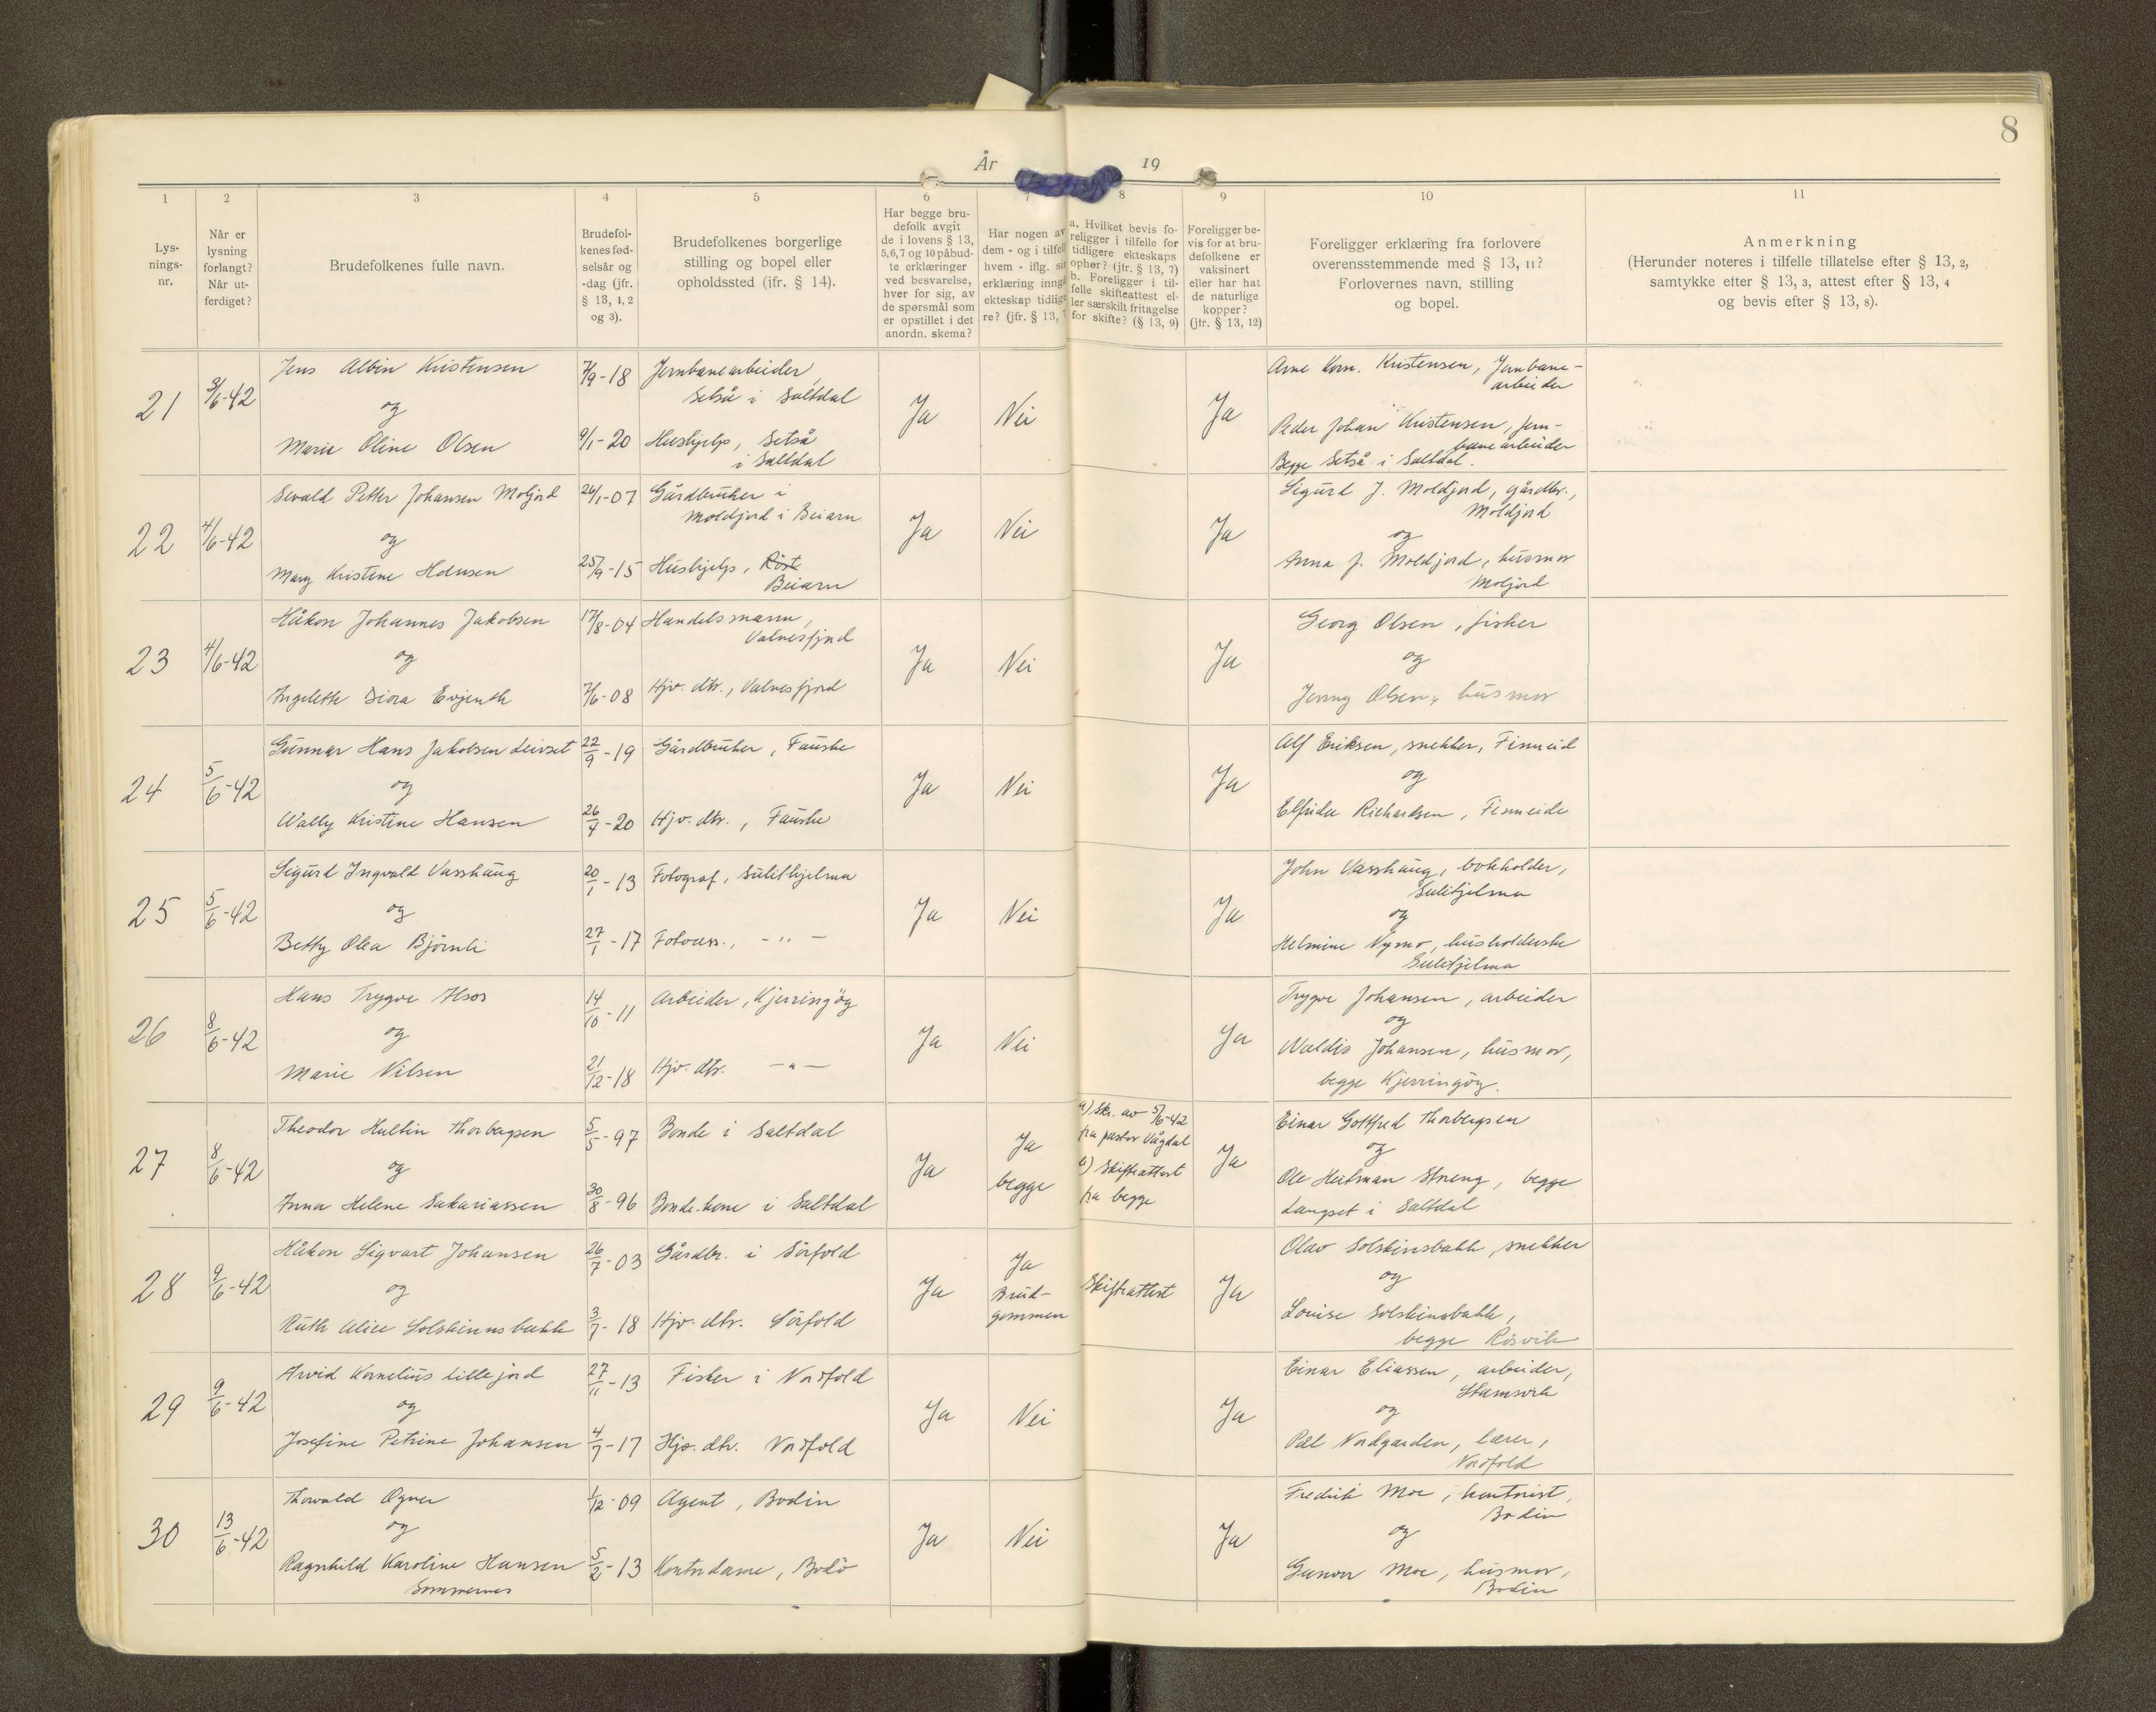 8
År 19
1
Lys-
nings-
nr.
2
Når er
lysning
forlangt?
Når ut-
ferdiget?
3
Brudefolkenes fulle navn.
4
Brudefol-
kenes fød-
selsår og
-dag (jfr.
§ 13, 1, 2
og 3).
5
Brudefolkenes borgerlige
stilling og bopel eller
opholdssted (jfr. § 14).
6
Har begge bru-
defolk avgit
de i lovens § 13,
5,6,7 og 10 påbud-
te erklæringer
ved besvarelse,
hver for sig, av
de spørsmål som
er opstillet i det
anordn. skema?
7
Har nogen av
dem - og i tilfel
hvem - iflg. si
erklæring inng
ekteskap tidlig
re? (jfr. § 13, 7
8
a. Hvilket bevis fo-
religger i tilfelle for
tidligere ekteskaps
ophør? (jfr. § 13, 7)
b. Foreligger i til-
felle skifteattest el-
ler særskilt fritagelse
for skifte? (§ 13, 9)
9
Foreligger be-
vis for at bru-
defolkene er
vaksinert
eller har hat
de naturlige
kopper?
(jfr. § 13, 12)
10
Foreligger erklæring fra forlovere
overensstemmende med § 13, 11?
Forlovernes navn, stilling
og bopel.
11
Anmerkning
(Herunder noteres i tilfelle tillatelse efter § 13, 2,
samtykke efter § 13, 3, attest efter § 13, 4
og bevis efter § 13, 8).
21
3/6-42
Jens Albin Kristensen
og
Marie Oline Olsen
7/9-18
9/1-20
Jernbanearbeider,
Setså i Saltdal
Hushjelp, Setså
i Saltdal
Ja
Nei
Ja
Arne Korn. Kristensen, Jernbane-
arbeider
Peder Johan Kristensen, jern-
banearbeider
Begge Setså i Saltdal.
22
4/6-42
Sevald Petter Johansen Moljord
og
Mary Kristine Hansen
26/1-07
25/9-15
Gårdbruker i
Moldjord i Beiarn
Hushjelp, Röst
Beiarn
Ja
Nei
Ja
Sigurd J. Moldjord, gårdbr.,
Moldjord
og
Anna J. Moldjord, husmor
Moljord
23
4/6-42
Håkon Johannes Jakobsen
og
Ingeleth Diora Evjenth
17/8-04
7/6-08
Handelsmann,
Valnesfjord
Hjv. dtr., Valnesfjord
Ja
Nei
Ja
Georg Olsen, fisker
og
Jenny Olsen, husmor
24
5/6-42
Gunnar Hans Jakobsen Leivset
og
Wally Kristine Hansen
22/9-19
26/4-20
Gårdbruker, Fauske
Hjv. dtr., Fauske
Ja
Nei
Ja
Alf Eriksen, snekker, Finneid
og
Elfrida Richardsen, Finneide
25
5/6-42
Sigurd Ingvald Vasshaug
og
Betty Olea Björnli
20/1-13
27/1-17
Fotograf, Sulithjelma
Fotoass., - " -
Ja
Nei
Ja
John Vasshaug, bokholder,
Sulitjelma
og
Helmine Nymo, husholderske
Sulitjelma
26
8/6-42
Hans Trygve Hsos
og
Marie Nilsen
14/10-11
21/12-18
Arbeider, Kjerringöy
Hjv. dtr. - " -
Ja
Nei
Ja
Trygve Johansen, arbeider
og
Waldis Johansen, husmor,
begge Kjerringöy.
27
8/6-42
Theodor Hultin Thorbergsen
og
Anna Helene Sakariassen
5/5-97
30/8-96
Bonde i Saltdal
Bonde-kone i Saltdal
Ja
Ja
begge
a) Skr. av 5/6-42
fra pastor Vågdal
b) Skifteattest
fra begge
Ja
Einar Gottfred Thorbergsen
og
Ole Heitman Streng, begge
Langset i Saltdal
28
9/6-42
Håkon Sigvart Johansen
og
Ruth Alice Solskinnsbakk
26/7-03
3/7-18
Gårdbr. i Sörfold
Hjv. dtr. Sörfold
Ja
Ja
Brud-
gommen
Skifteattest
Ja
Olav Solskinsbakk, snekker
og
Louise Solskinsbakk,
begge Rösvik
29
9/6-42
Arvid Kornelius Lillejord
og
Josefine Petrine Johansen
27/11-13
4/7-17
Fisker i Nordfold
Hjv. dtr. Nordfold
Ja
Nei
Ja
Einar Eliassen, arbeider,
Stamsvik
og
Pål Nordgarden, lærer,
Nordfold
30
13/6-42
Thorvald Ogner
og
Ragnhild Karoline Hansen
Sommernes
1/12-09
5/2-13
Agent, Bodin
Kontordame, Bodö
Ja
Nei
Ja
Fredrik Moe, kontorist,
Bodin
og
Gunvor Moe, husmor,
Bodin